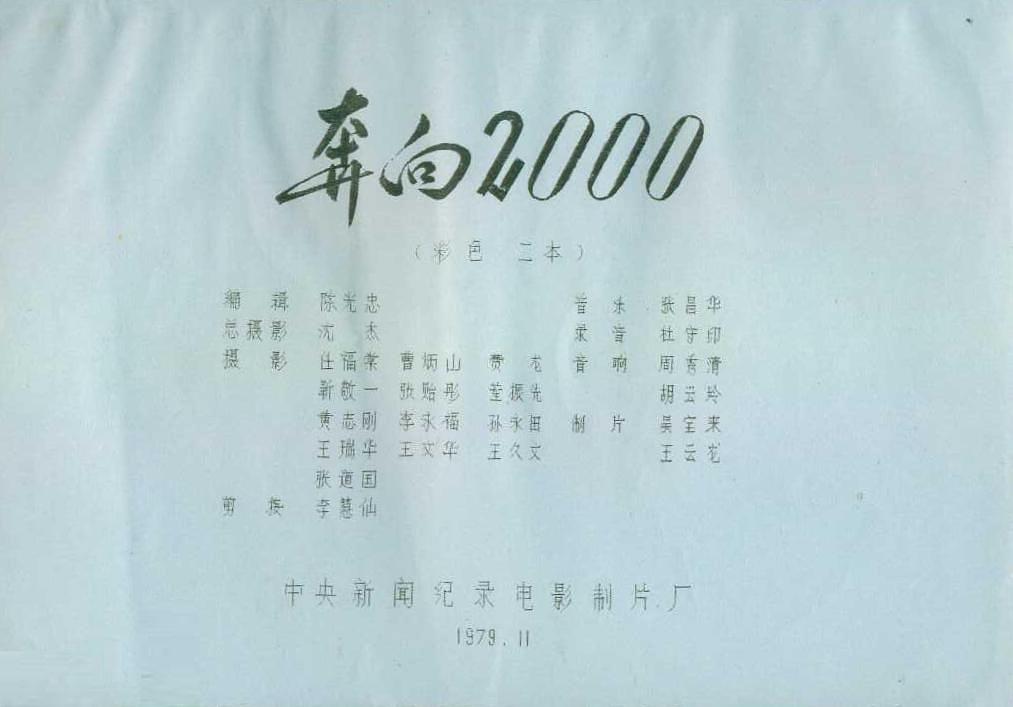 奔向2000
（彩色 二本）
编辑 陈光忠 音乐 张昌华
总摄影 沈杰 录音 杜守印
摄影 任福棠 曹炳山 费龙 音响 周秀清
靳敬一 张贻彤 董振先 胡云玲
黄志刚 李永福 孙永田 制片 吴宝来
王瑞华 王文华 王久文 王云龙
张道国
剪接 李慧仙
中央新闻纪录电影制片厂
1979.11